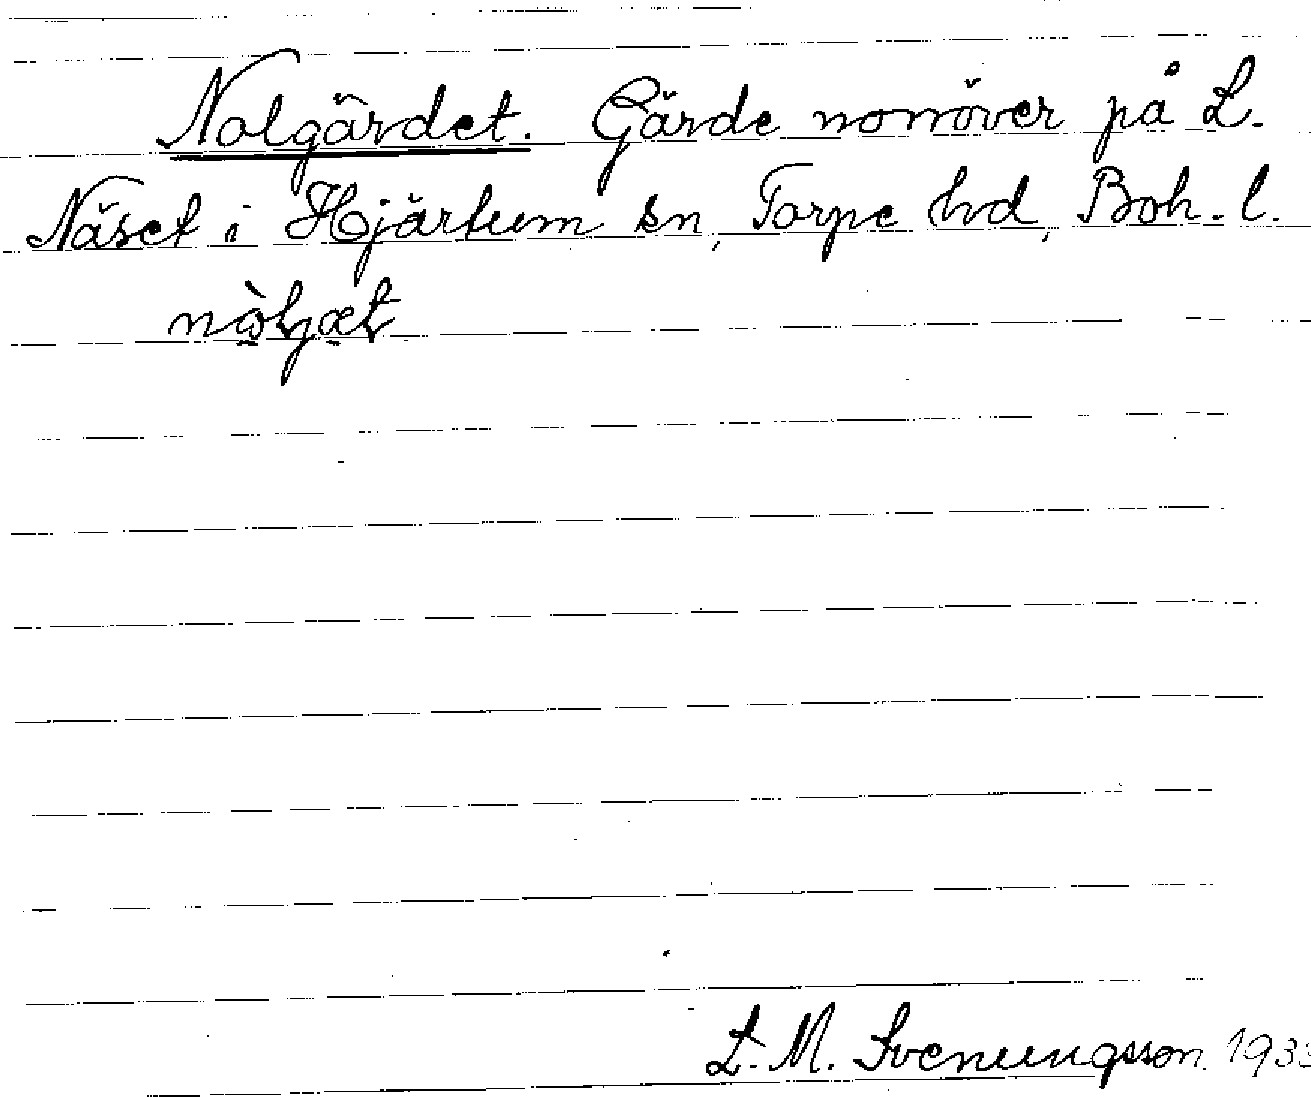 Nolgärdet. Gärde norröver på L.
Näset i Hjärtum sn, Torpe hd, Boh. l.
L. M. Svenungsson 1933